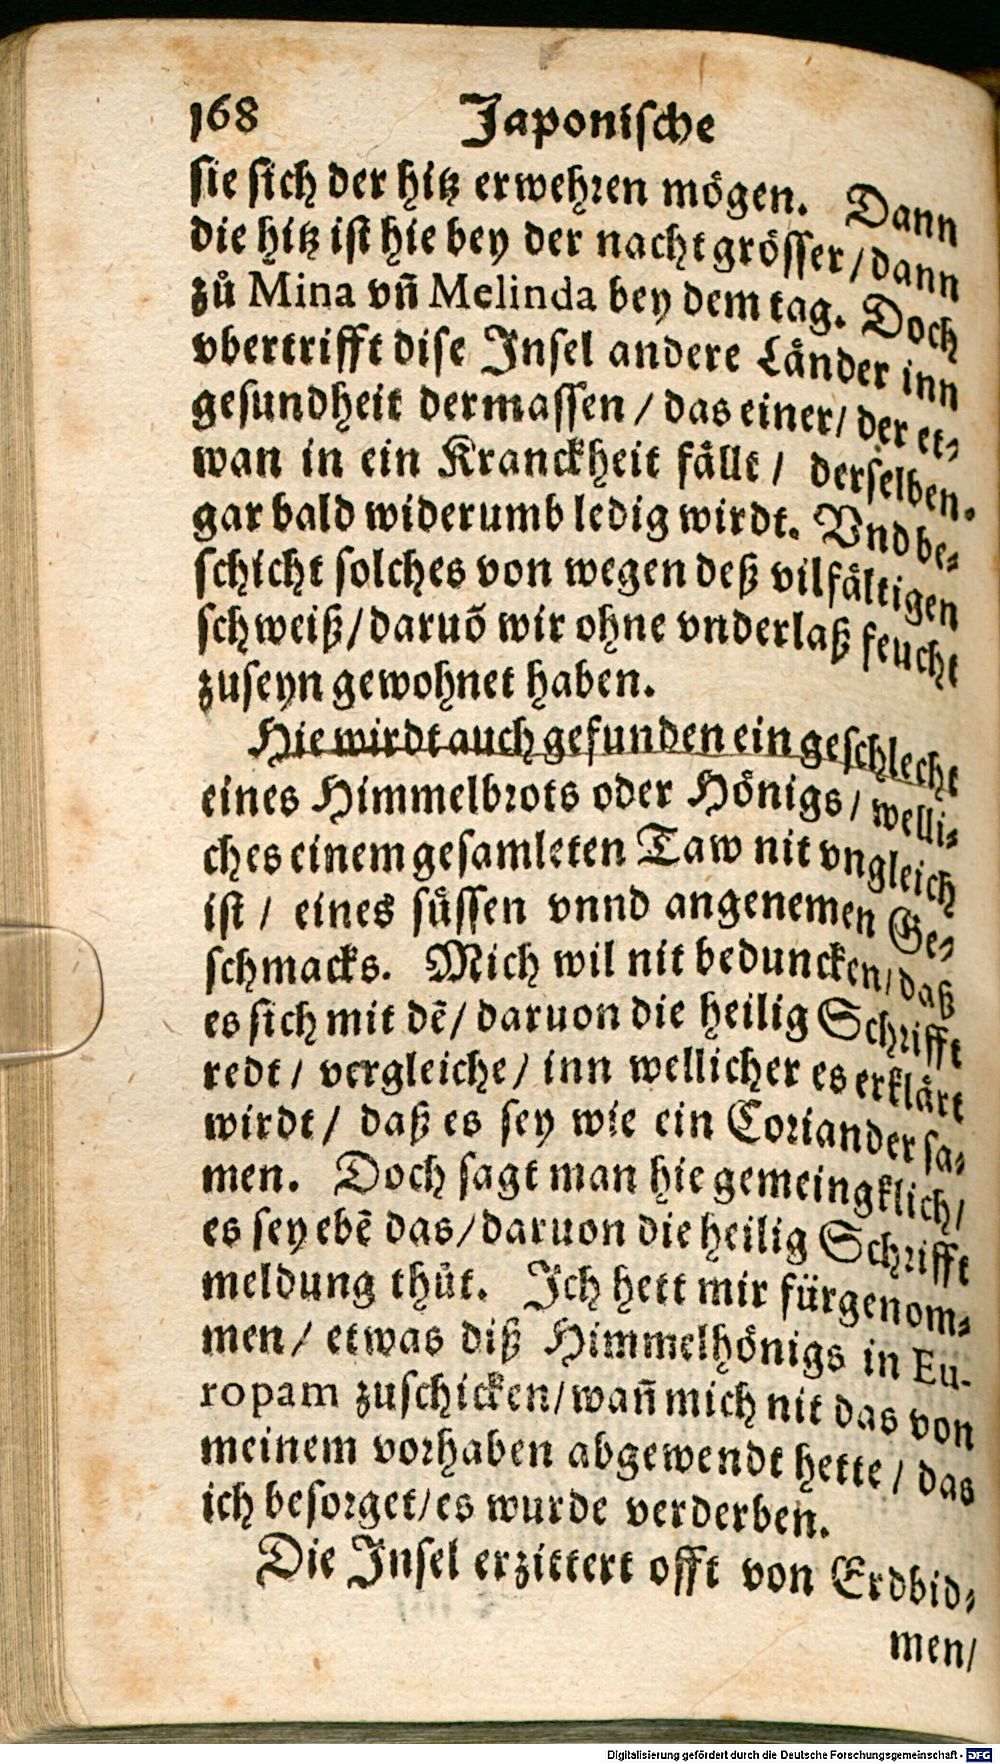 168 Japonische
sie sich der hitz erwehren mögen. Dann
die hitz ist hie bey der nacht grösser / dann
zů Mina vñ Melinda bey dem tag. Doch
vbertrifft dise Insel andere Länder inn
gesundheit dermassen / das einer / der et⸗
wan in ein Kranckheit fällt / derselben
gar bald widerumb ledig wirdt. Vnd be⸗
schicht solches von wegen deß vilfältigen
schweiß / daruõ wir ohne vnderlaß feucht
zuseyn gewohnet haben.
Hie wirdt auch gefunden ein geschlecht
eines Himmelbrots oder Hönigs / welli⸗
ches einem gesamleten Taw nit vngleich
ist / eines süssen vnnd angenemen Ge⸗
schmacks. Mich wil nit beduncken / daß
es sich mit dẽ / daruon die heilig Schrifft
redt / vergleiche / inn wellicher es erklärt
wirdt / daß es sey wie ein Coriander sa⸗
men. Doch sagt man hie gemeingklich /
es sey ebẽ das / daruon die heilig Schrifft
meldung thůt. Ich hett mir fürgenom⸗
men / etwas diß Himmelhönigs in Eu-
ropam zuschicken / wañ mich nit das von
meinem vorhaben abgewendt hette / das
ich besorget / es wurde verderben.
Die Insel erzittert offt von Erdbid⸗
men /
Digitalisierung gefördert durch die Deutsche Forschungsgemeinschaft - DFG